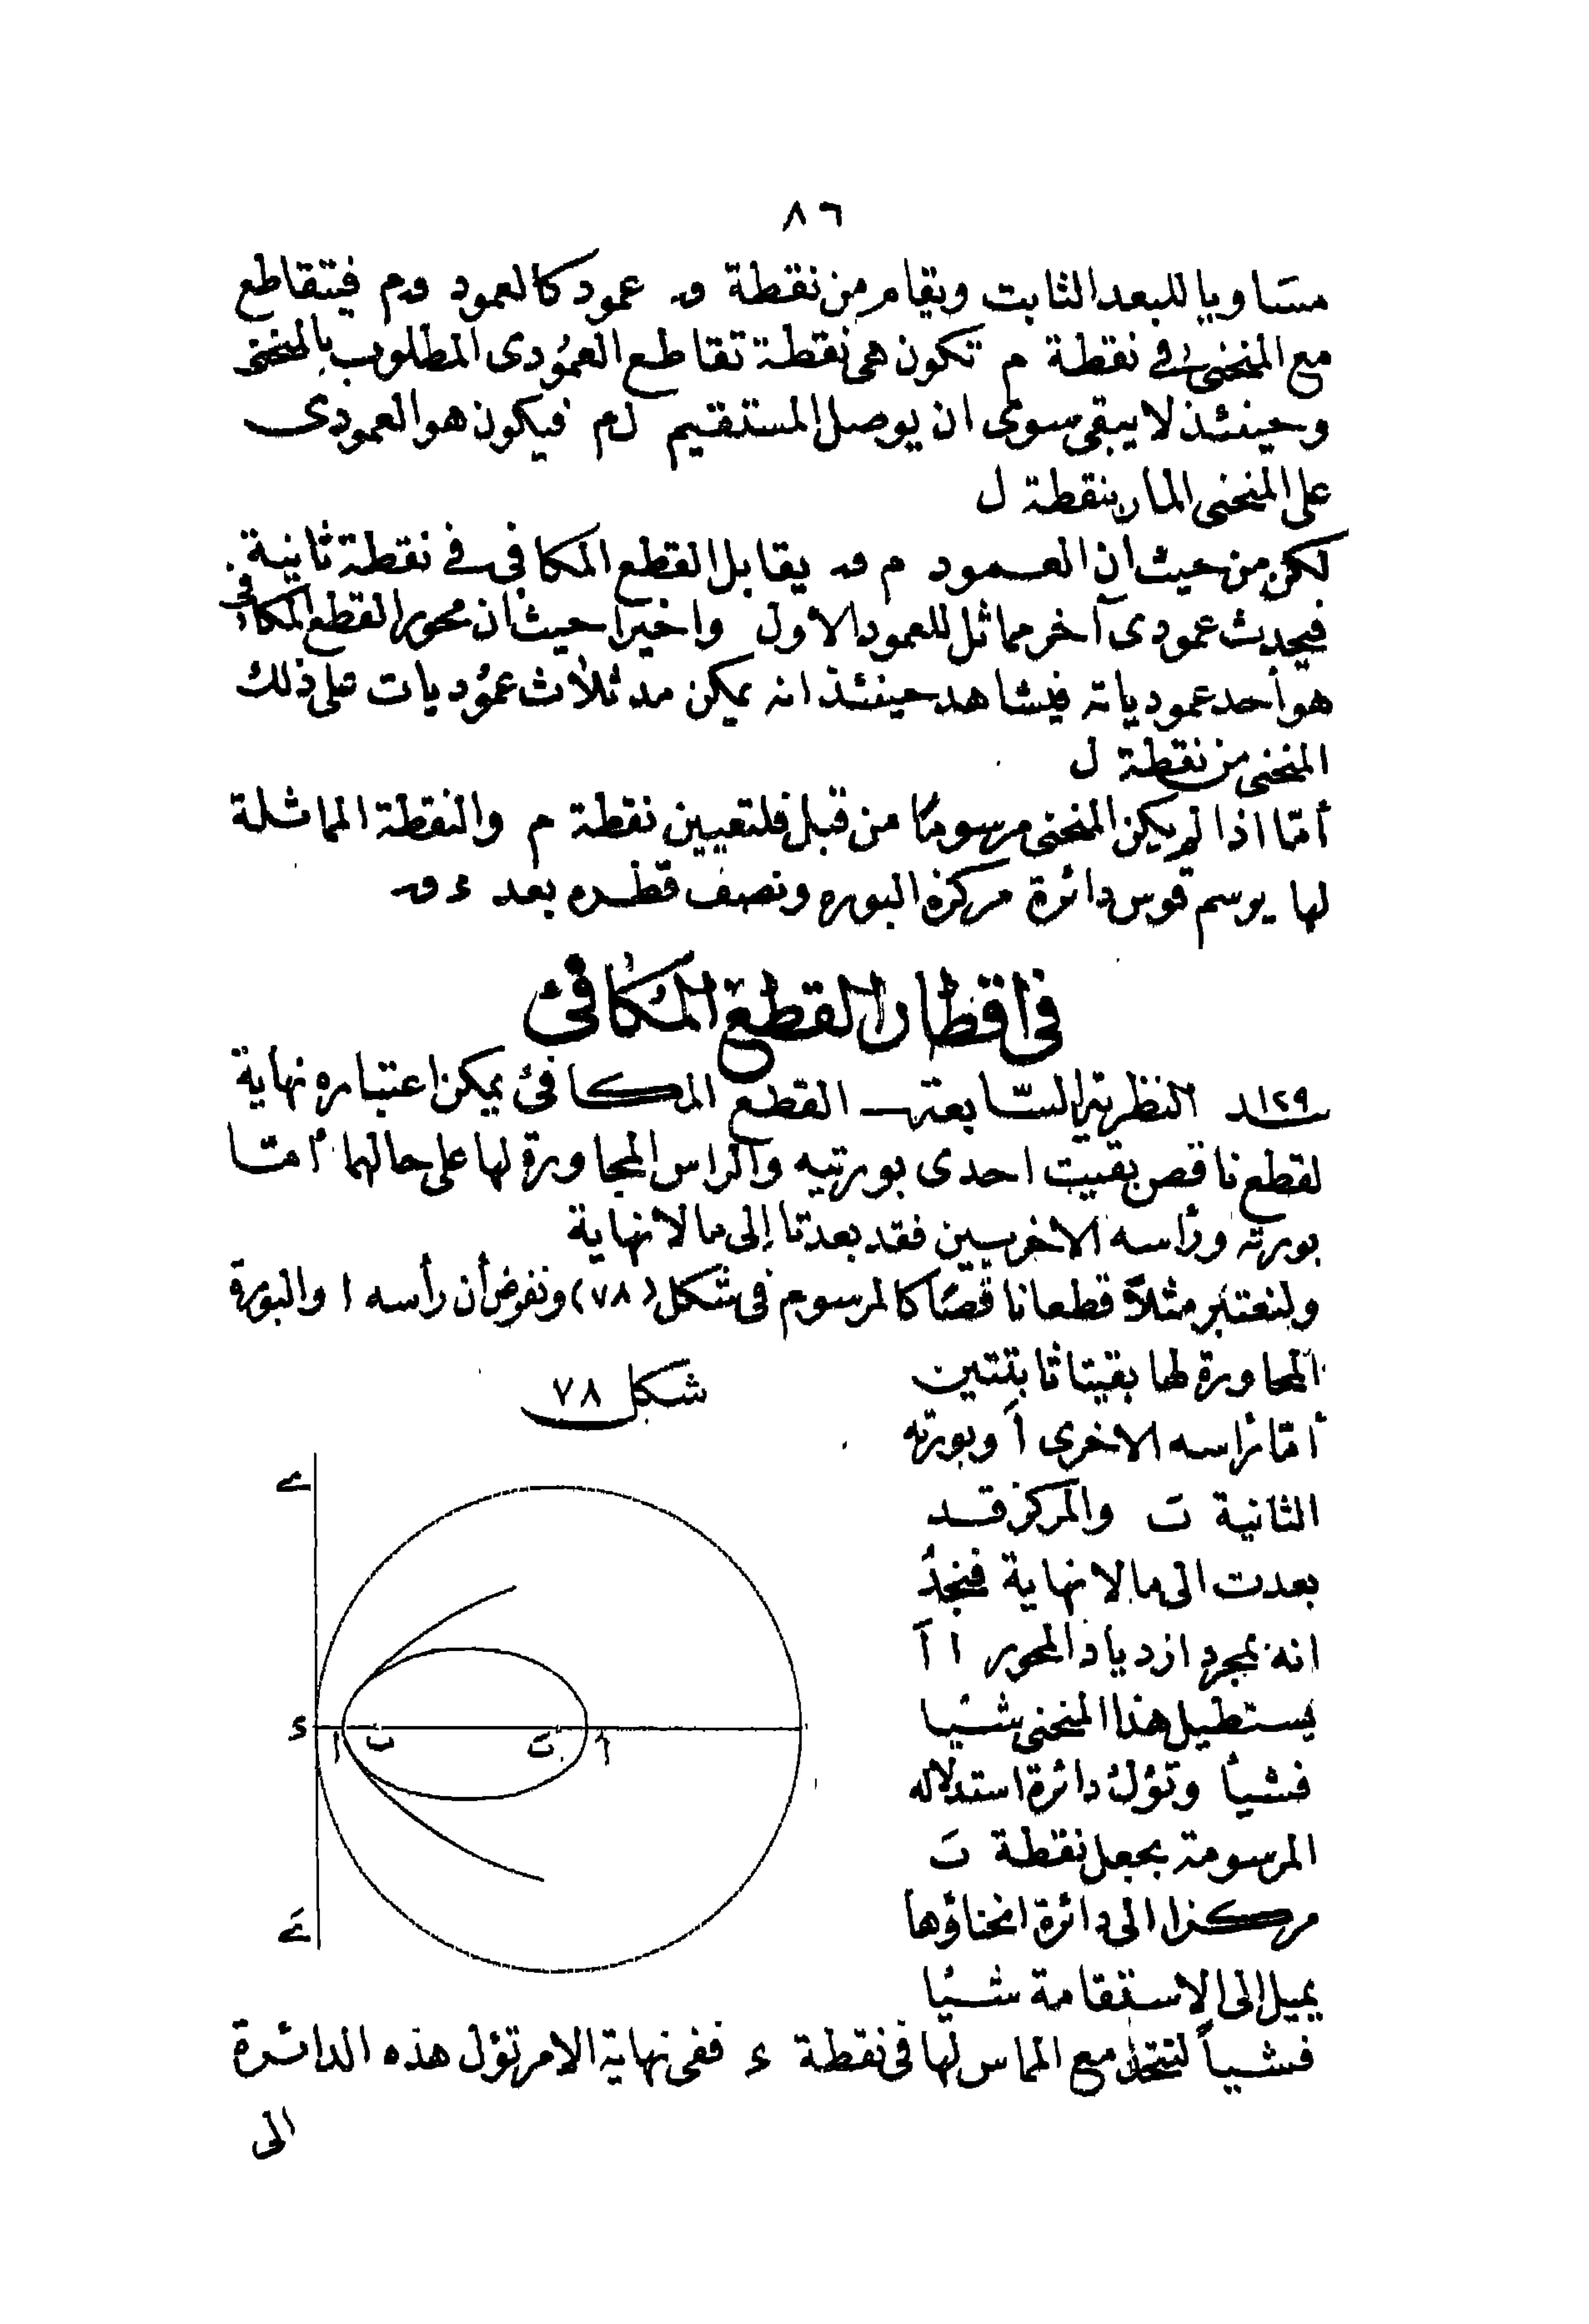 ٨٦
مساويا للبعد الثابت ويقام من نقطة ں عمود كالعمود ںم فيتقاطع
مع المنحنى في نقطة م تكون هى نقطة تقاطع العمودى المطلوب بالمنحنى
وحينئذ لا يبقى سوى ان يوصل المستقيم لم فيكون هو العمودى
على المنحنى المار بنقطة ل
لكن من حيث ان العمود م ں يقابل القطع المكافى في نقطة ثانية
فيحدث عمودى آخر مماثل للعمود الاول واخيرا حيث أن محور القطع المكافى
هو أحد عمودياته فيشاهد حينئذ انه يمكن مد ثلاث عموديات على ذلك
المنحنى من نقطة ل
أمّا اذا لم يكن المنحنى مرسومًا من قبل فلتعيين نقطة م والنقطة المماثلة
لها يرسم قوس دائرة مركزه البوره ونصف قطره بعد ء ں
فى اقطار القطع المكافئ
١٢٩ النظرية السّابعة ـ القطع المكافئ يمكن اعتباره نهاية
لقطع ناقص بقيت احدى بورتيه والراس المجاورة لها على حالهما أمّا
بورته ورأسه الاخريين فقد بعدتا إلى ما لا نهاية
ولنعتبر مثلاً قطعا ناقصًا كالمرسوم فى شكل (٧٨) ونفرض أن رأسه ا والبورة
المجاورة لها بقيتا ثابتتين
أمّا رأسه الاخرى اَ وبورته
الثانية بَ والمركز قد
بعدت الى ما لا نهاية فنجد
انه بمجرد ازدياد المحور ا اَ
يستطيل هذا المنحنى شيئا
فشيأ وتؤل دائرة استدلاله
المرسومة بجعل نقطة بَ
مركزا الى دائرة انحناؤها
يميل إلى الاستقامة شيئا
فشيأ لتتحد مع المماس لها فى نقطة ء ففى نهاية الامر تؤل هذه الدائرة
الى
شكل ٧٨
ے
ء
ا
ب
بَ
اَ
ےَ